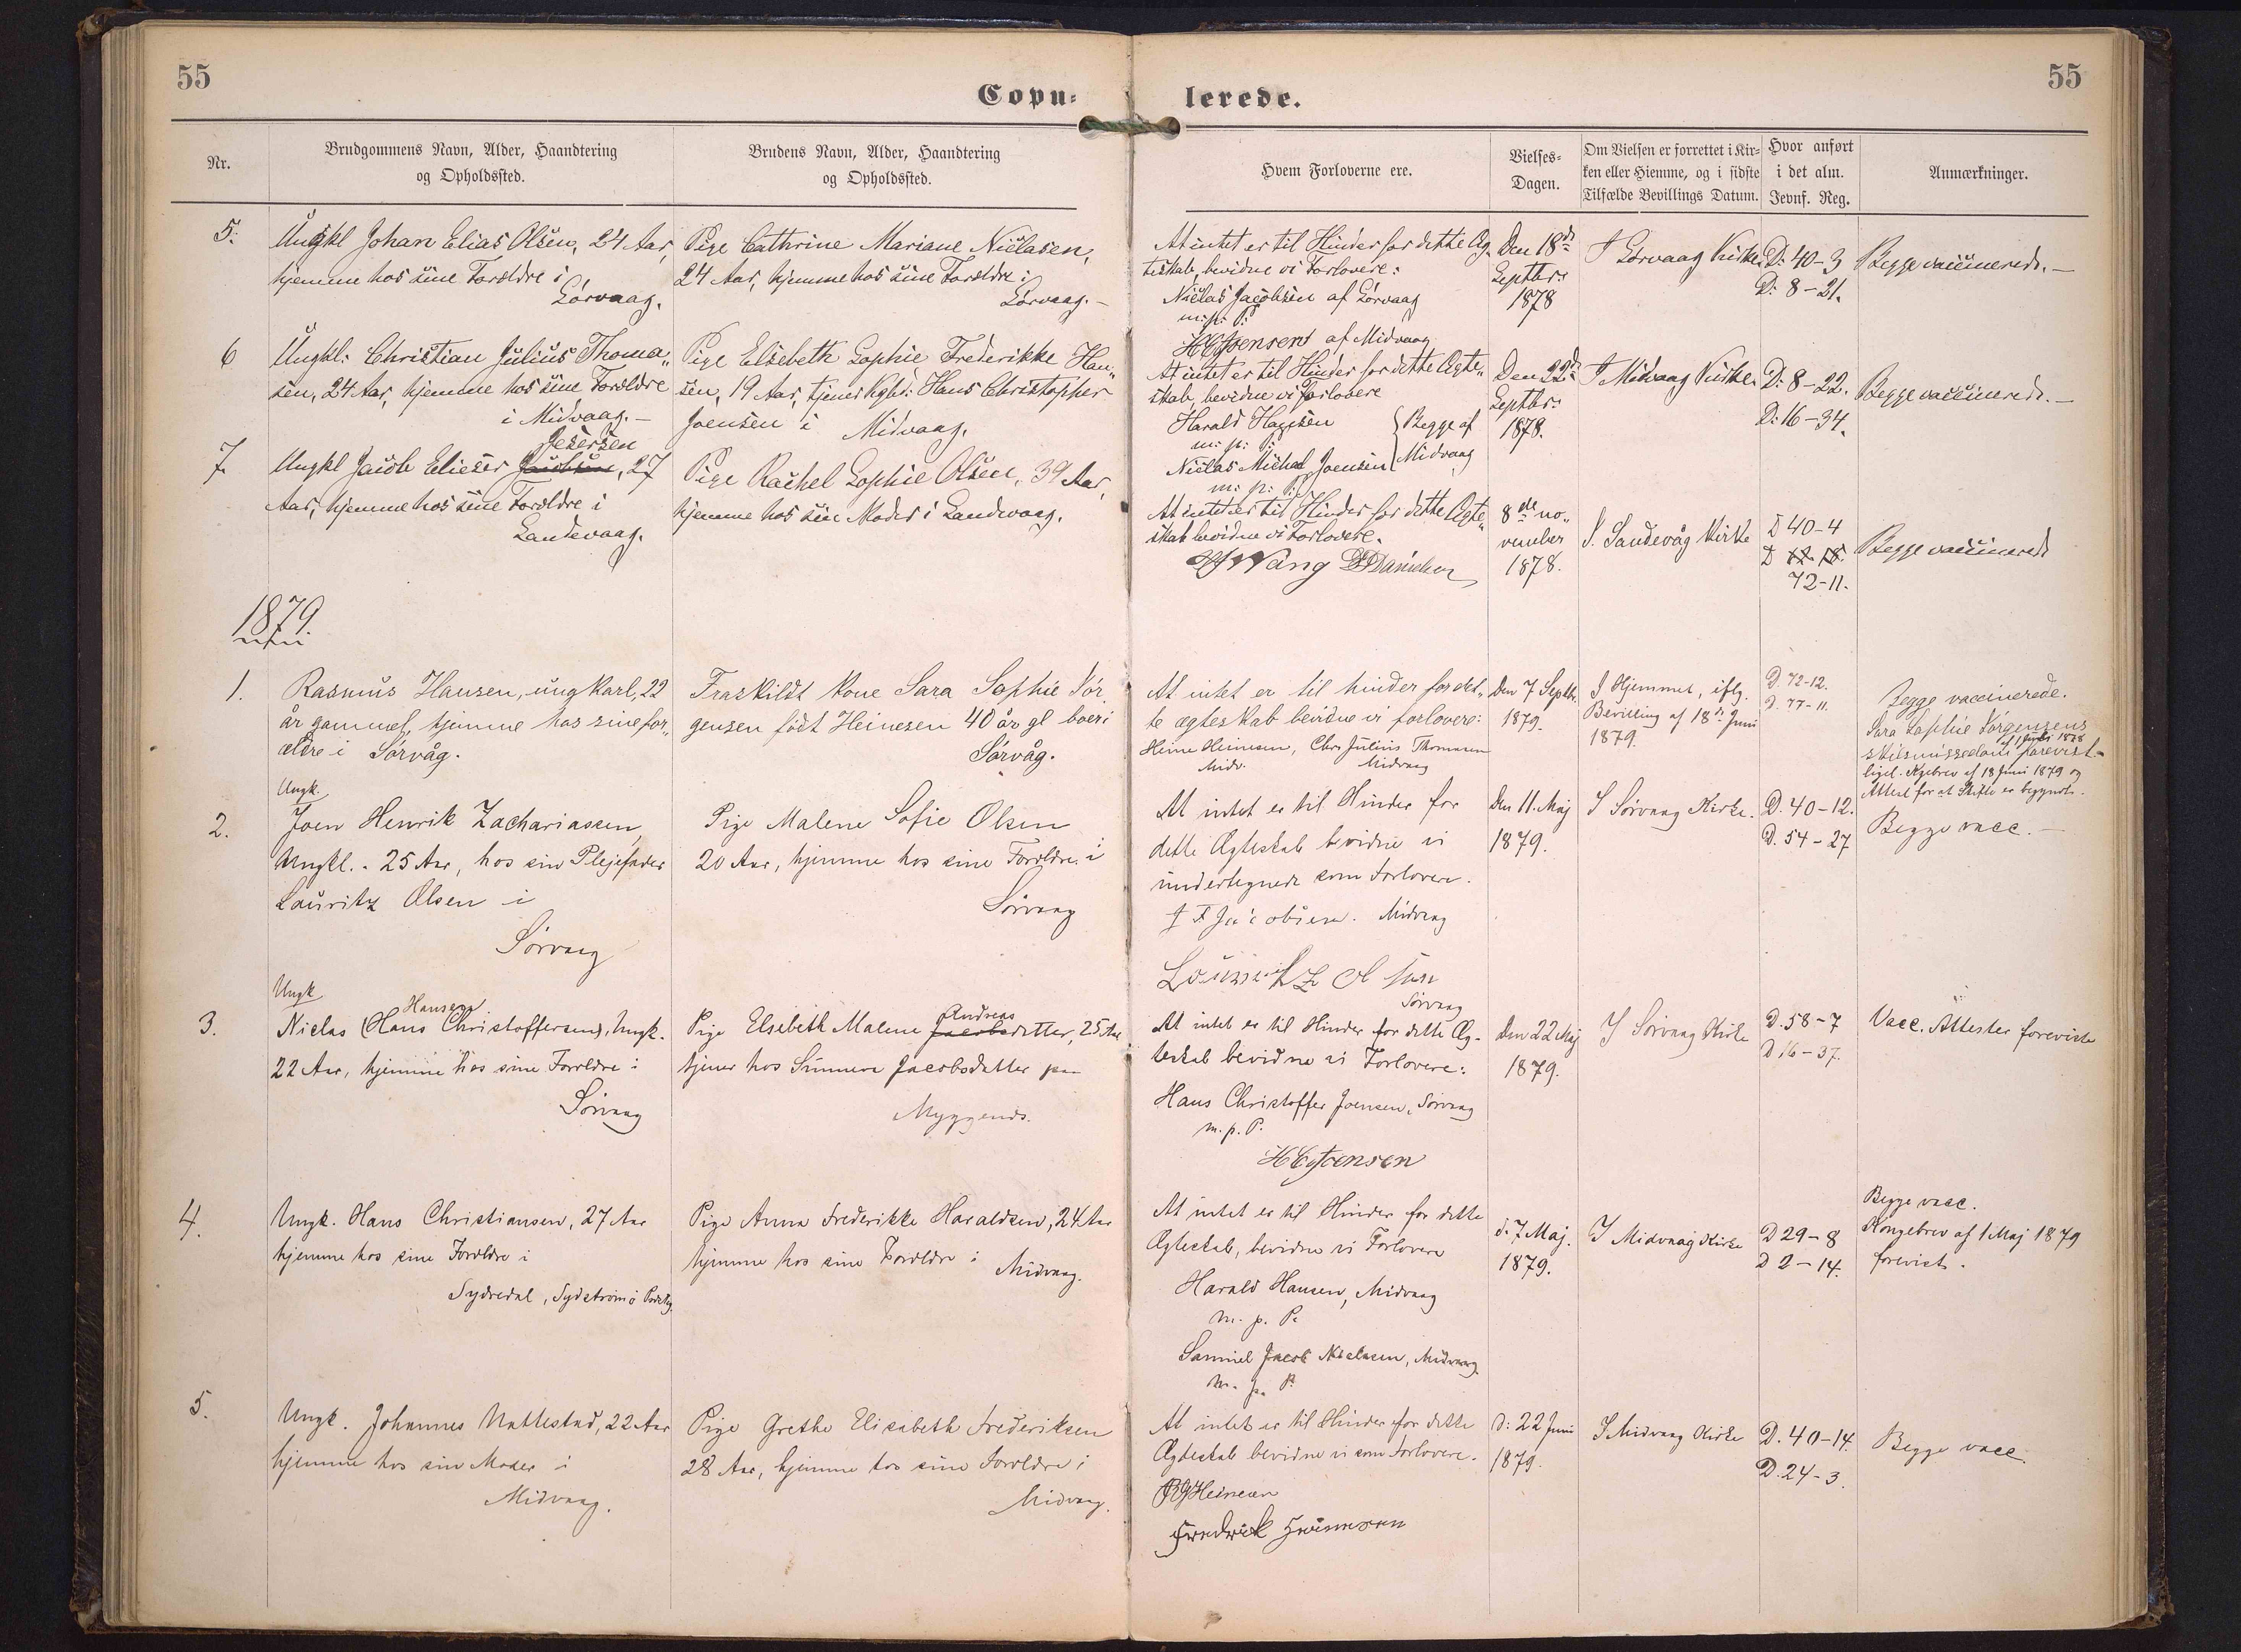 55
55
Copu-
lerede.
Nr.
Brudgommens Navn, Alder, Haandtering
og Opholdssted.
Brudens Navn, Alder, Haandtering
og Opholdssted.
Hvem Forloverne ere.
Vielses-
Dagen.
Om Vielsen er forrettet i Kir-
ken eller Hiemme, og i sidste
Tilfælde Bevillings Datum.
Hvor anført
i det alm.
Jevnf. Reg.
Anmærkninger.
5.
Ungkl Johan Elias Olsen, 24 Aar,
hjemme hos sine Forældre i
Sørvaag.
Pige Cathrine Mariane Niclasen,
24 Aar, hjemme hos sine Forældre i
Sørvaag. –
At intet er til Hinder for dette Æg-
teskab, bevidne vi Forlovere:
Niclas Jacobsen af Sørvaag
m: p: P:
HCJoensen af Midvaag
Den 18de
Septbr:
1878
I Sørvaag Kirke.
D: 40-3
D: 8-21.
Begge vaccinerede. –
6
Ungkl: Christian Julius Thoma„
sen, 24 Aar, hjemme hos sine Forældre
i Midvaag. –
Pige Elsebeth Sophie Frederikke Han„
sen, 19 Aar, tjener Kgbd: Hans Christopher
Joensen i Midvaag.
At intet er til Hinder for dette Ægte„
skab, bevidne vi Forlovere
Harald Hansen
m: p: P:
Niclas Michal Joensen
m: p: P:
Begge af
Midvaag
Den 22de
Septbr:
1878.
I Midvaag Kirke.
D: 8-22.
D: 16-34.
Begge vaccinerede. –
7.
Jesersen
Ungkl Jacob Elieser Jacobsen, 27
Aar, hjemme hos sine Forældre i
Sandevaag.
Pige Rachel Sophie Olsen, 39 Aar,
hjemme hos sin Moder i Sandevaag.
At intet er til Hinder for dette Ægte„
skab bevidne vi Forlovere.
Wang Danielsen
8de no„
vember
1878.
I. Sandevåg Kirke
D 40-4
D
72-11.
Begge vaccinerede
1879
1.
Rasmus Hansen, ungkarl, 22
år gammel, hjemme hos sine for„
ældre i Sørvåg.
Fraskildt kone Sara Sophie Jør
gensen født Heinesen 40 år gl boer i
Sørvåg.
At intet er til hinder for det„
te ægteskab bevidne vi forlovere:
Heine Heinesen, Chr. Julius Thomasen
Midv. Midvaag
Den 7 Septbr.
1879.
I Hjemmet, iflg.
Bevilling af 18de Juni
1879.
D. 72-12.
D. 77-11.
Begge vaccinerede.
Sara Sophie Jørgensens
af 1 Juli 1878
skilsmissedom forevist
ligel. Kgebrev af 18 Juni 1879 og
Attest for at Skifte er begyndt.
2.
Ungk.
Joen Henrik Zachariasen,
Ungkl. - 25 Aar, hos sin Plejefader
Lauritz Olsen i
Sørvaag
Pige Malene Sofie Olsen
20 Aar, hjemme hos sine Forældre i
Sørvaag
At intet er til Hinder for
dette Ægteskab bevidne vi
undertegnede som Forlovere.
J F Jacobsen. Midvaag
Louritz Olsen
Sørvaag
Den 11. Maj
1879.
I Sørvaag Kirke.
D. 40-12.
D. 54-27
Begge vacc. –
3.
Ungk
Hansen
Niclas (Hans Christoffersen), Ungk.
22 Aar, hjemme hos sine Forældre i
Sørvaag
Andreas
Pige Elsebeth Malene Jacobsdatter, 25 Aar
tjener hos Sunneva Jacobsdatter paa
Myggenæs.
At intet er til Hinder for dette Æg-
teskab bevidne vi Forlovere:
Hans Christoffer Joensen, Sørvaag
m. p. P.
HCJoensen
Den 22 Maj
1879.
I Sørvaag Kirke
D. 58-7
D 16-37.
Vacc. Attester foreviste
4.
Ungk. Hans Christiansen, 27 Aar
hjemme hos sine Forældre i
Sydredal, Sydstrømø
Pige Anna Frederikke Haraldsen, 24 Aar
hjemme hos sine Forældre i Midvaag.
At intet er til Hinder for dette
Ægteskab, bevidne vi Forlovere
Harald Hansen, Midvaag
m. p. P.
Samuel Jacob Niclasen, Midvaag
m. p. P.
d. 7 Maj.
1879.
I Midvaag Kirke
D 29-8
D 2-14.
Begge vacc.
Kongebrev af 1 Maj 1879
forevist.
5.
Ungk. Johannes Nattestad, 22 Aar
hjemme hos sin Moder i
Midvaag.
Pige Grethe Elisabeth Frederiksen
28 Aar, hjemme hos sine Forældre i
Midvaag.
At intet er til Hinder for dette
Ægteskab bevidne vi som Forlovere.
Heinesen
D: 22 Juni
1879.
I Midvaag Kirke
D. 40-14.
D. 24-3.
Begge vacc.